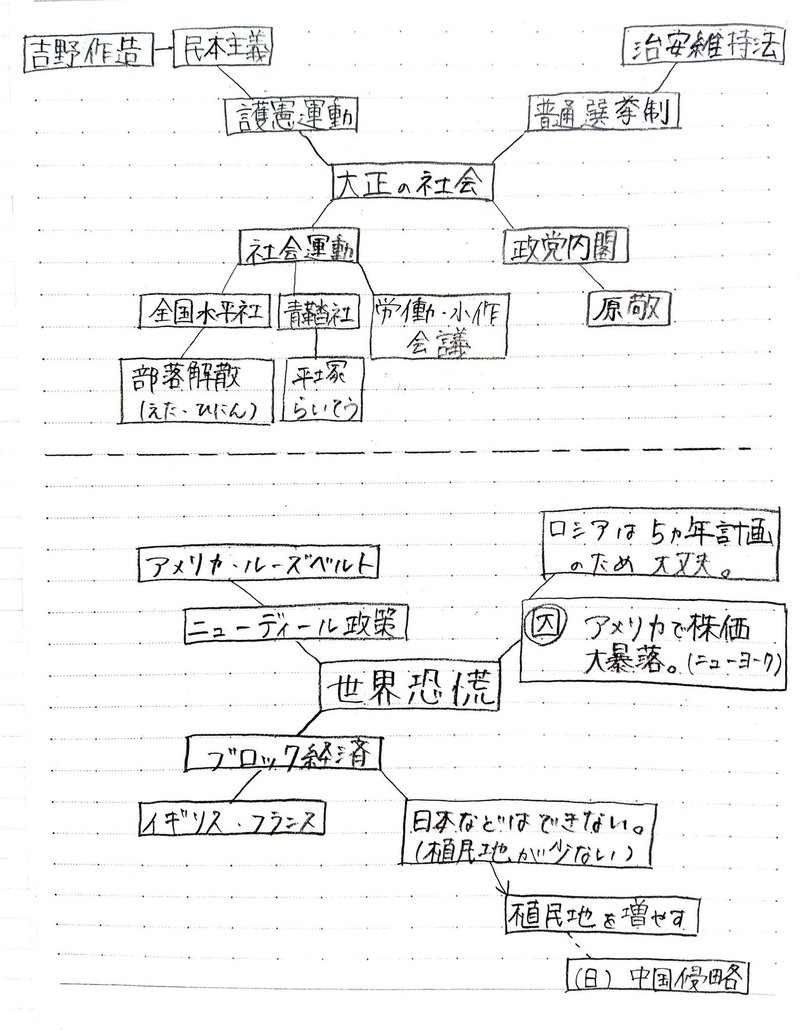 吉野作造
民本主義
治安維持法
護憲運動
普通選挙制
大正の社会
社会運動
政党内閣
全国水平社
青鞜社
労働・小作
会議
原敬
部落解散
(えた・ひにん)
平塚
らいてう
ロシアは5カ年計画
のため大丈夫。
アメリカ・ルーズベルト
ニューディール政策
因 アメリカで株価
大暴落。(ニューヨーク)
世界恐慌
ブロック経済
イギリス・フランス
日本などはできない。
(植民地が少ない)
植民地を増やす
(日)中国侵略